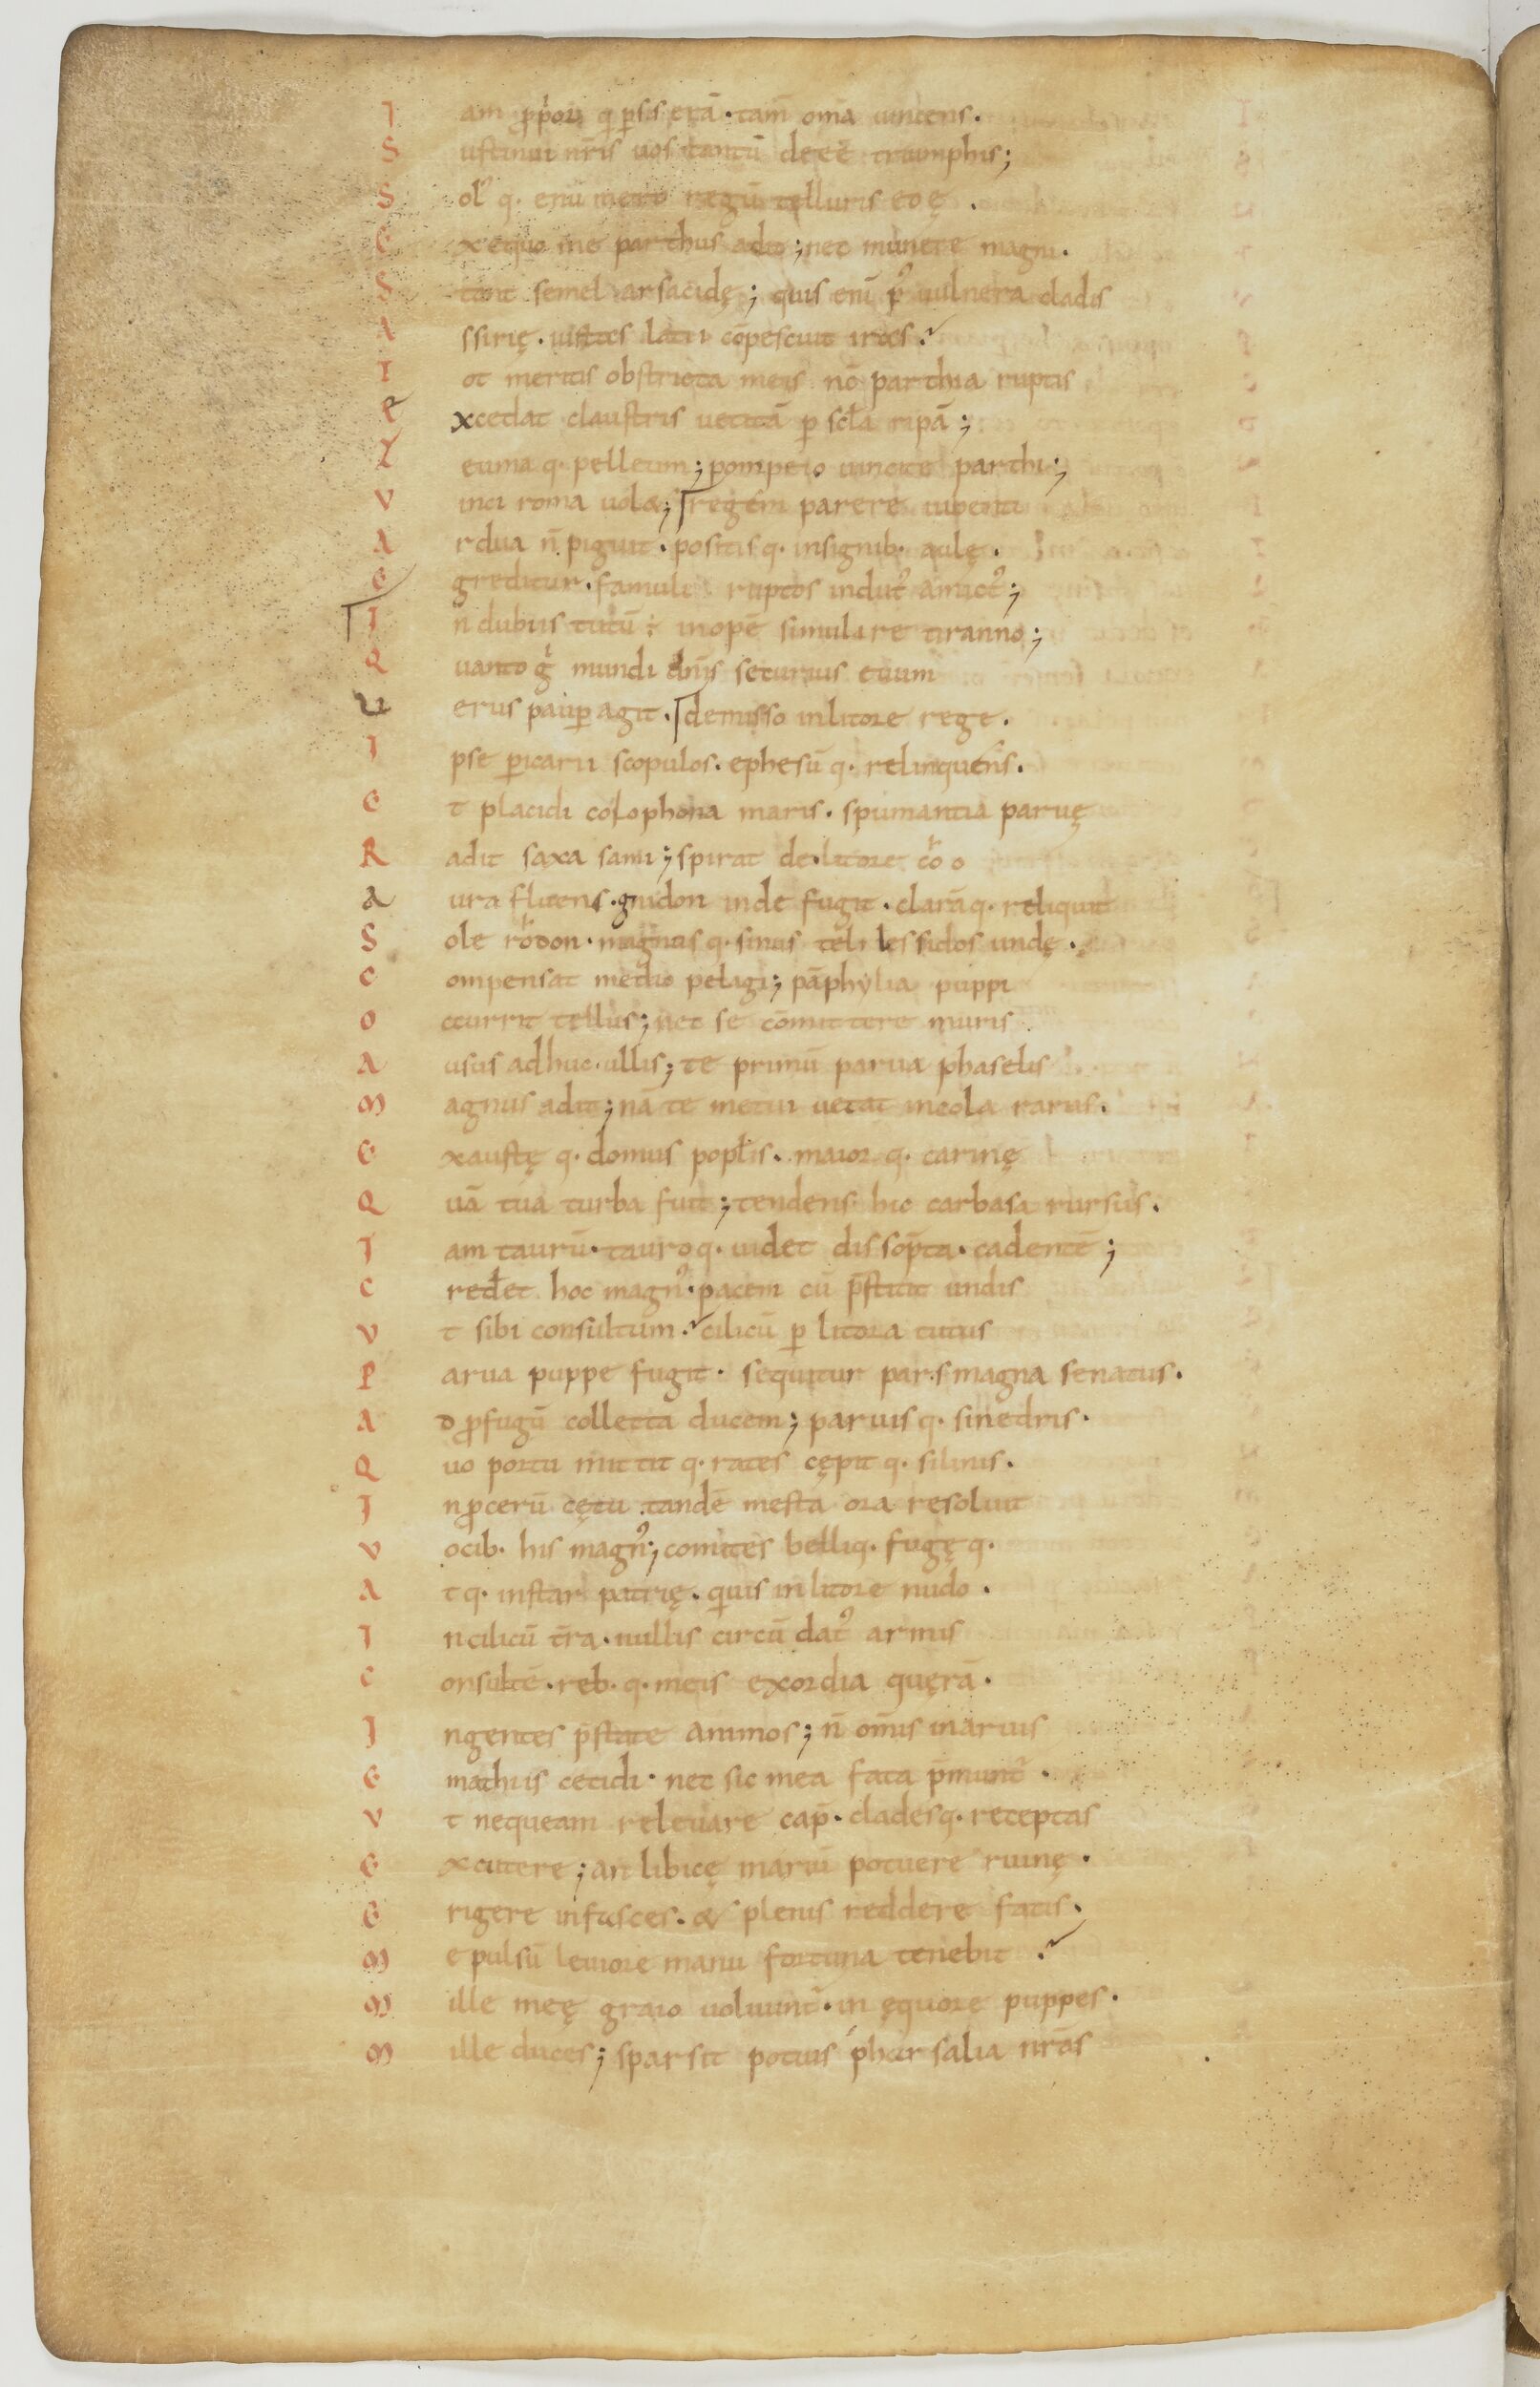 I am ꝓp̾or q̇ ꝑsis erā · tam̄ om̄a uincens ·
S ustinui nr̄is uos tantū deeē triumphis ;
S ol' q· enī meto regū telluris eoę ·
E xequo me parthus adit ; nec munere magni ·
S tant semel arsacidę ; quis enī p' uulnera cladis
A ssirię · iustas latii cōpescuit iras ·
T ot meritis obstricta meis nō parthia ruptis
E xcedat claustris uetitā ꝑ sc̄l'a ripā ;
Z euma q· pelleum ; pompeio uincite parthi ;
V inci roma uolet ; regem parere iubenti
A rdua n̄ piguit · positis q· insignib· aulę ·
E greditur · famuli raptos indut' amict' ;
I n dubiis tutū ÷ inopē simulare tiranno ;
Q uanto g̊ mundi dn̄is securius euum
U erus paupꝑ agit · demisso in litore rege ·
I pse ꝑ icarii scopulos · ephesū q· relinquens ·
E t placidi colophona maris · spumantia paruę
R adit saxa sami ; spirat de litore cōo
A ura fluens · gnidon inde fugit · clarā q· reliquit
S ole rodon · magnas q· sinus teli lessidos undę ·
C ompensat medio pelagi ; pāphylia puppi
O ccurrit tellus ; nec se cōmittere muris
A usus adhuc · ullis ; te primū parua phaselis
M agnus adit ; nā te metui uetat incola rarus ·
E xaustę q· domus popl'is · maior q· carinę
Q uā tua turba fuit ; tendens hic carbasa rursus ·
I am taurū · tauro q· uidet dissop̄ta · cadentē ;
C redet hoc magn' · pacem cū p̄stitit undis
V t sibi consultum · cilicū ꝑ litora tutus
P arua puppe fugit · sequitur pars magna senatus ·
A d ꝓfugū collecta ducem ; paruis q· sinedris ·
Q uo portu mittit q· rates cępit q· silinus ·
I n ꝓcerū cętu tandē mesta ora resoluit
V ocib· his magn' ; comites belli q· fugę q·
A t q· instar patrię · quis in litore nudo ·
I n cilicū t̄ra · nullis circū dat' armis
C onsultē · reb· q· meis exordia quęrā ·
I ngentes p̄state animos ; n̄ om̄is in aruis
E mathiis cecidi · nec sic mea fata p̄munt' ·
V t nequeam releuare cap̄ · clades q· receptas
E xcutere ; an libicę mariū potuere ruinę ·
E rigere in fasces · & plenis reddere fatis ·
M e pulsū leuiore manu fortuna tenebit ·
M ille meę graio uoluunt' · in ęquore puppes ·
M ille duces ; sparsit potius pharsalia nr̄as